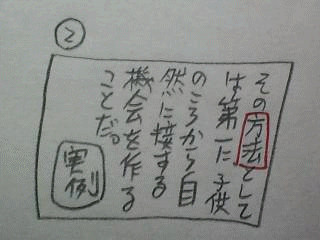 ②
その方法として
は第一に子供
のころから自
然に接する
機会を作る
ことだ。
実例